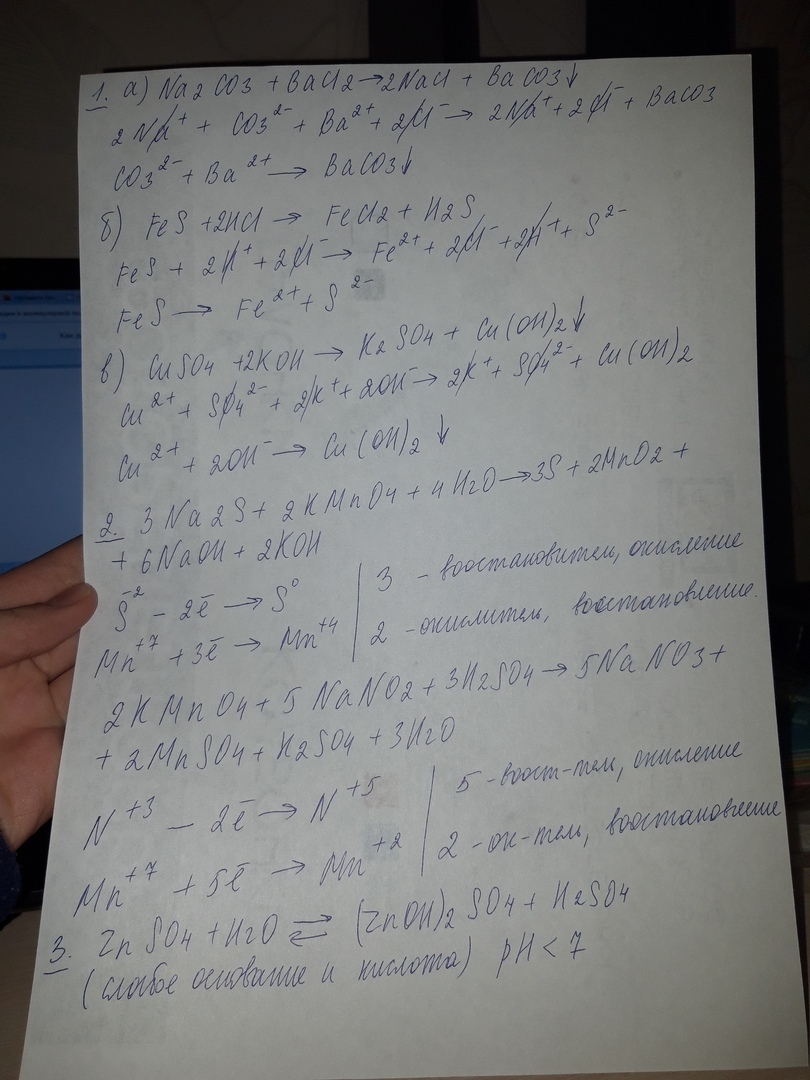 1. а) Na2CO3 + BaCl2 → 2NaCl + BaCO3↓
2Na⁺ + CO3²⁻ + Ba²⁺ + 2Cl⁻ → 2Na⁺ + 2Cl⁻ + BaCO3
CO3²⁻ + Ba²⁺ → BaCO3↓
б) FeS + 2HCl → FeCl2 + H2S
FeS + 2H⁺ + 2Cl⁻ → Fe²⁺ + 2Cl⁻ + 2H⁺ + S²⁻
FeS → Fe²⁺ + S²⁻
в) CuSO4 + 2KOH → K2SO4 + Cu(OH)2↓
Cu²⁺ + SO4²⁻ + 2K⁺ + 2OH⁻ → 2K⁺ + SO4²⁻ + Cu(OH)2
Cu²⁺ + 2OH⁻ → Cu(OH)2↓
2. 3Na2S + 2KMnO4 + 4H2O → 3S + 2MnO2 +
+ 6NaOH + 2KOH
S⁻² - 2ē → S⁰ | 3 - восстановител, окисление
Mn⁺⁷ + 3ē → Mn⁺⁴ | 2 - окислитель, восстановление.
2KMnO4 + 5NaNO2 + 3H2SO4 → 5NaNO3 +
+ 2MnSO4 + K2SO4 + 3H2O
N⁺³ - 2ē → N⁺⁵ | 5 - восст-тел, окисление
Mn⁺⁷ + 5ē → Mn⁺² | 2 - ок-тель, восстановление
3. ZnSO4 + H2O ⇄ (ZnOH)2SO4 + H2SO4
(слабое основание и кислота) pH < 7